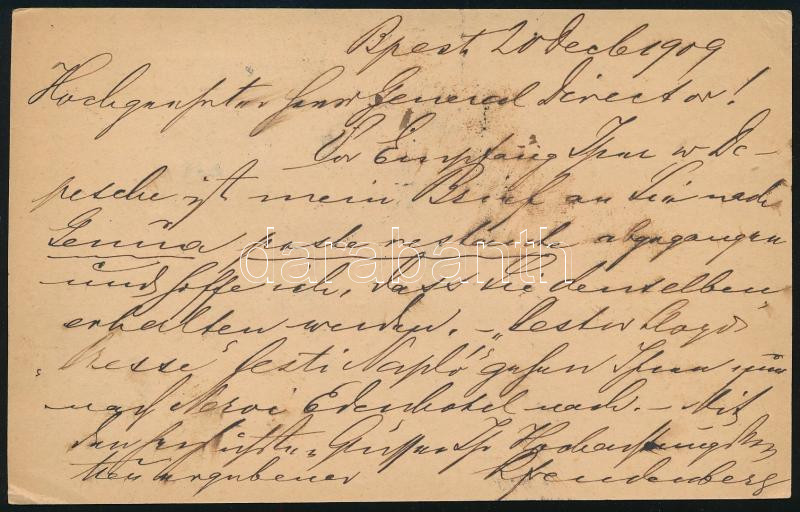 Bpest 20 Decb 1909
Hochgeehrter Herr General Director!
Vor Empfang Ihrer w De-
pesche ist mein Brief an Sie nach
Genua poste restante abgegangen
und hoffe ich, dass Sie denselben
erhalten werden. – "Pester Lloyd
"Presse" Pesti Napló" gehen Ihnen nun
nach Nervi Edenhotel nach. – Mit
den herzlichsten Grüssen Ihr
ergebener
darabanth